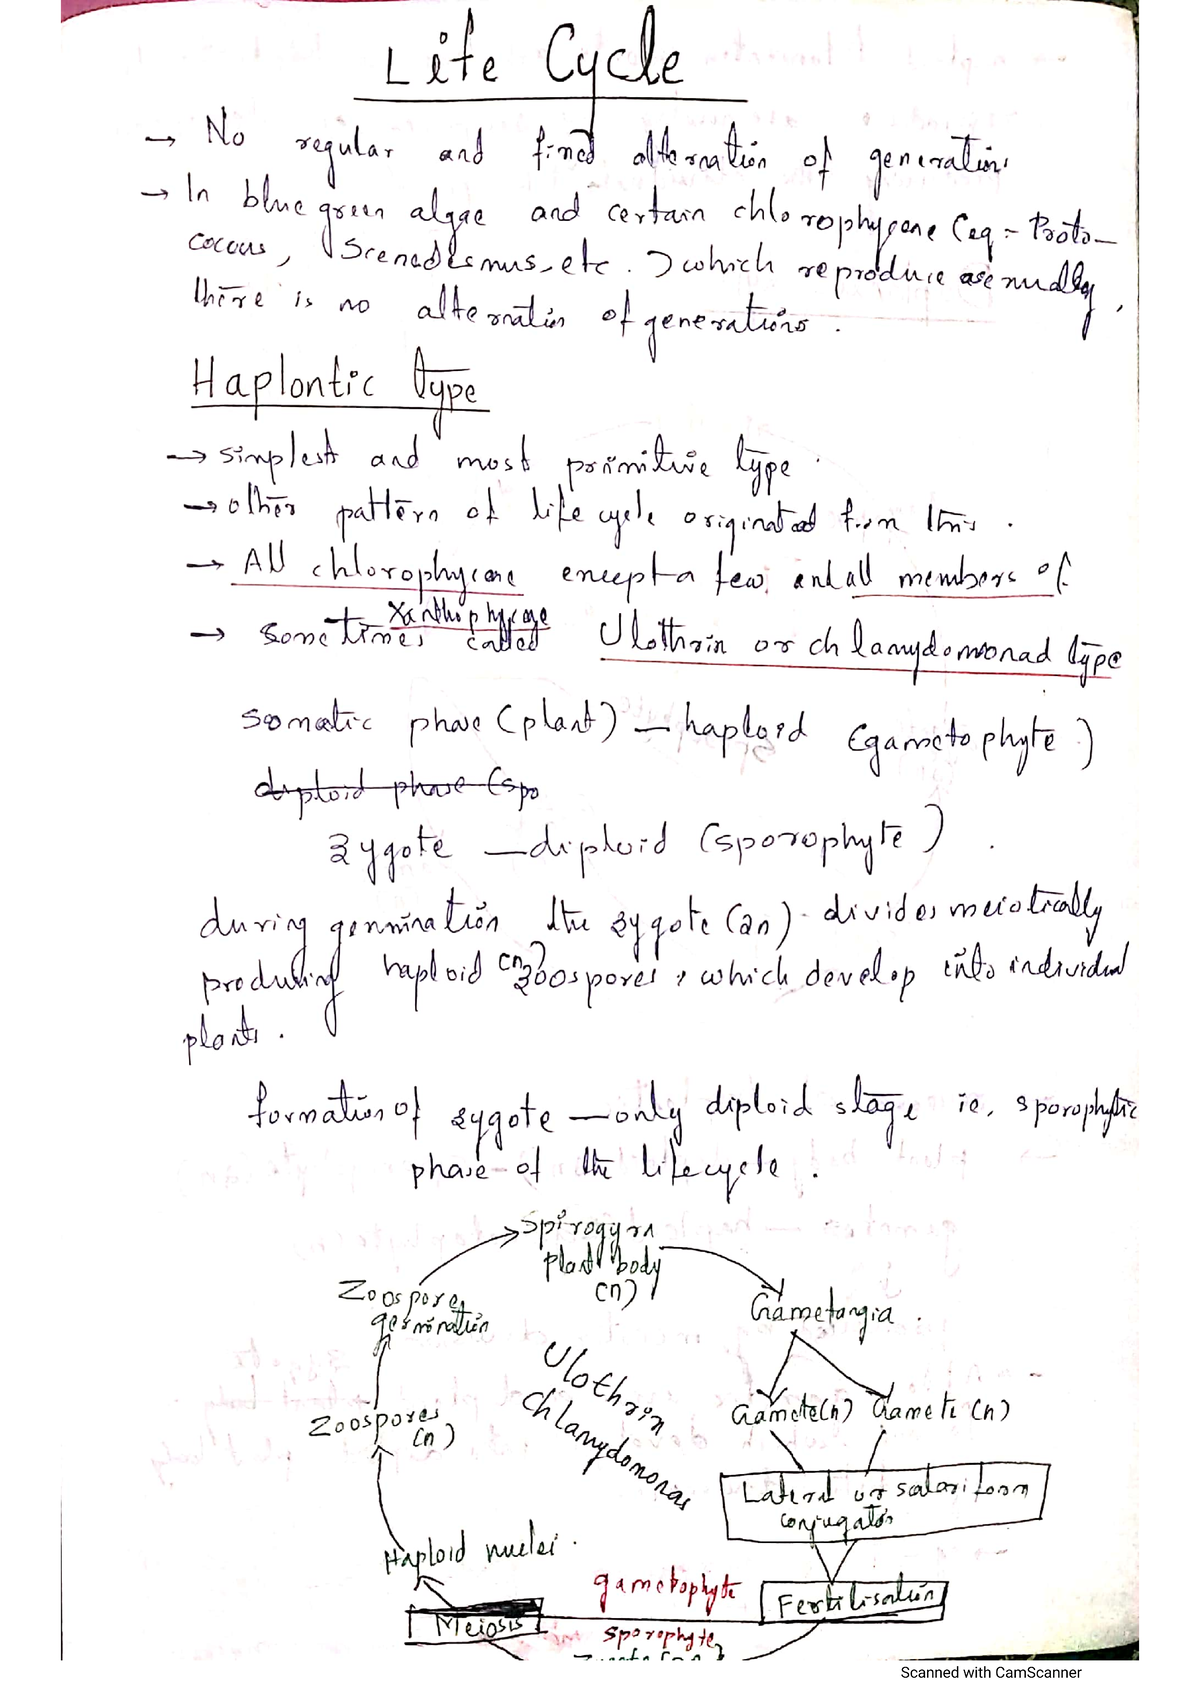 Life Cycle
→ No regular and fined alternation of generation.
→ In blue green algae and certain chlorophyceae (eg - Proto-
coccus, Scenedesmus, etc.) which reproduce asenually,
there is no alternation of generations.
Haplontic type
→ simplest and most primitive type.
→ other pattern of life cycle originated from this.
→ All chlorophyceae encept a few, and all members of
Xanthophyceae
→ sometimes called Ulothrin or chlamydomonad type
somatic phase (plant) - haploid (gametophyte)
diploid phase (spo
zygote - diploid (sporophyte).
during germination the zygote (2n) divides meiotically
producing haploid (n) zoospores, which develop into individual
plants.
formation of zygote - only diploid stage ie, sporophytic
phase of the lifecycle.
Spirogyra
plant body
(n)
Zoospore
germination
Gametangia.
Ulothrin
Chlamydomonas
Gamete(n) Gamete (n)
Zoospores
(n)
Lateral or scalariform
conjugation
Haploid nuclei.
gametophyte
Fertilisation
Meiosis
sporophyte
Scanned with CamScanner